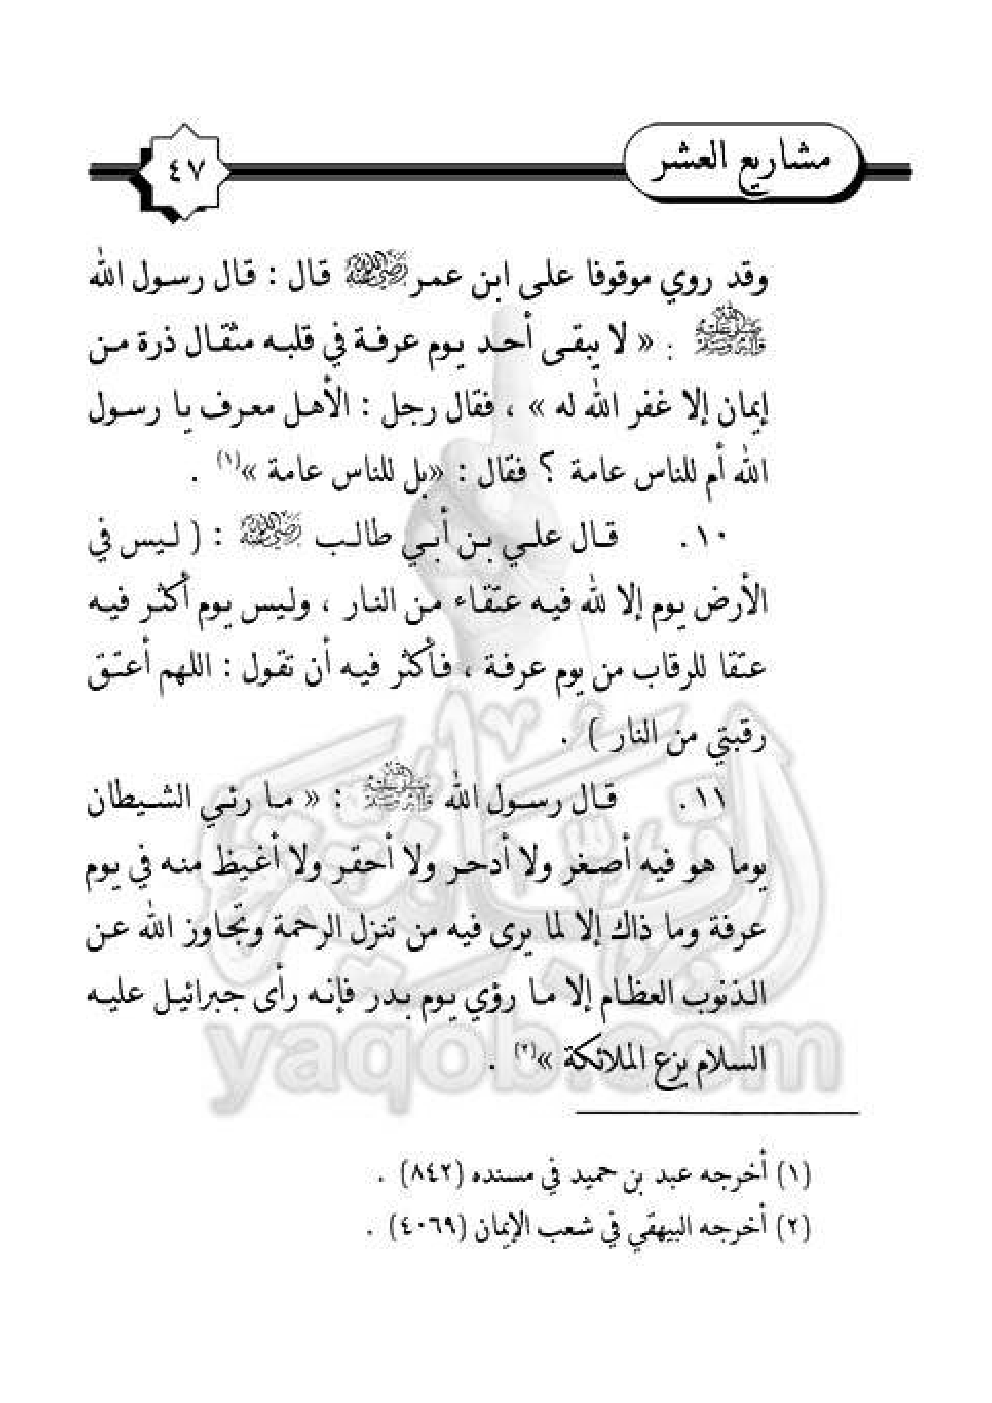 مشاريع العشر
٤٧
وقد روي موقوفا على ابن عمر رضي الله عنه قال : قال رسول الله
صلى الله عليه وآله وسلم : « لا يبقى أحد يوم عرفة في قلبه مثقال ذرة من
إيمان إلا غفر الله له » ، فقال رجل : الأهل معرف يا رسول
الله أم للناس عامة ؟ فقال : «بل للناس عامة »(١) .
١٠. قال علي بن أبي طالب رضي الله عنه : ( ليس في
الأرض يوم إلا لله فيه عتقاء من النار ، وليس يوم أكثر فيه
عتقا للرقاب من يوم عرفة ، فأكثر فيه أن تقول : اللهم أعتق
رقبتي من النار ) .
١١. قال رسول الله صلى الله عليه وآله وسلم : « ما رئي الشيطان
يوما هو فيه أصغر ولا أدحر ولا أحقر ولا أغيظ منه في يوم
عرفة وما ذاك إلا لما يرى فيه من تنزل الرحمة وتجاوز الله عن
الذنوب العظام إلا ما رؤي يوم بدر فإنه رأى جبرائيل عليه
السلام يزع الملائكة »(٢) .
(١) أخرجه عبد بن حميد في مسنده (٨٤٢) .
(٢) أخرجه البيهقي في شعب الإيمان (٤٠٦٩) .
yaqob.com